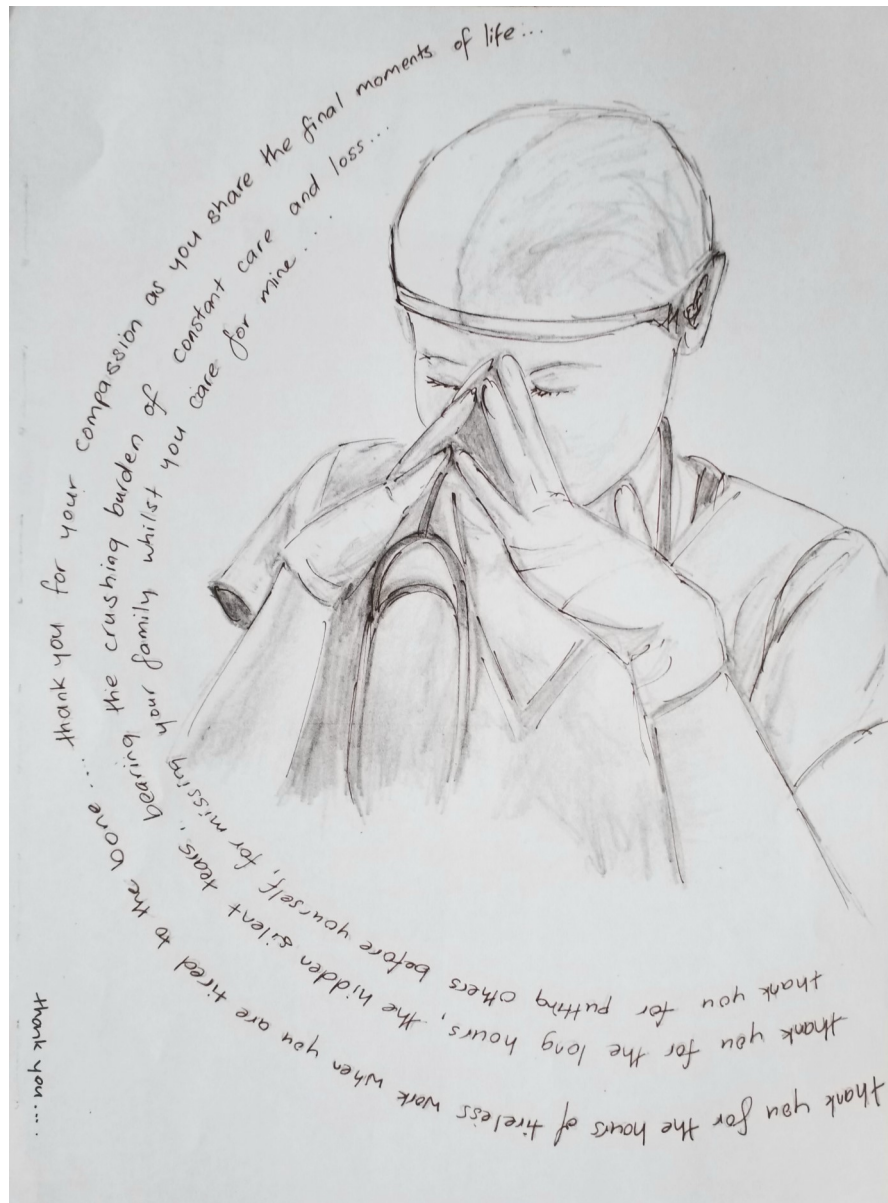 thank you for the hours of tireless work when you are tired to the bone.... thank you for your compassion as you share the final moments of life...
thank you for the long hours, the hidden silent tears, bearing the crushing burden of constant care and loss...
thank you for putting others before yourself, for missing your family whilst you care for mine....
thank you....